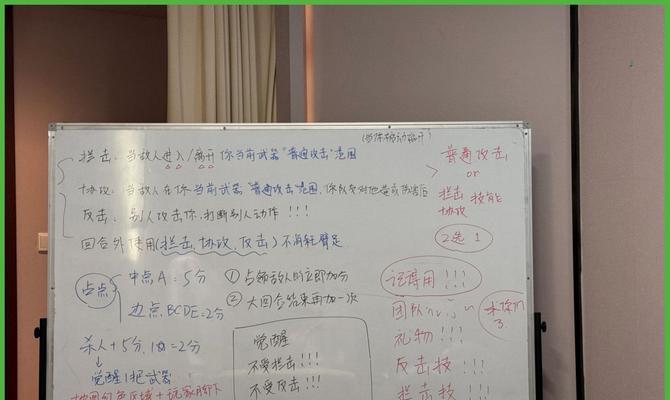 拦击：当敌人进入/离开你当前武器"普通攻击"范围
协攻：当敌人在你当前武器"普通攻击"范围，你队友对他造成伤害后
反击：别人攻击你，打断别人动作！！！
回合外使用(拦击，协攻，反击)不消耗
普通攻击
or
拦击 技能
协攻
2选1
占点
中点A=5分
边点，BCDE=2分
①占领敌人时立即加分
②大回合结束再加一次
杀人+5分，
=2分
觉醒1把武器
觉醒
不受拦击！！！
不受反击！！！
记得用！！！
团队
礼物！！！
反击技！！！
拦击技！！！